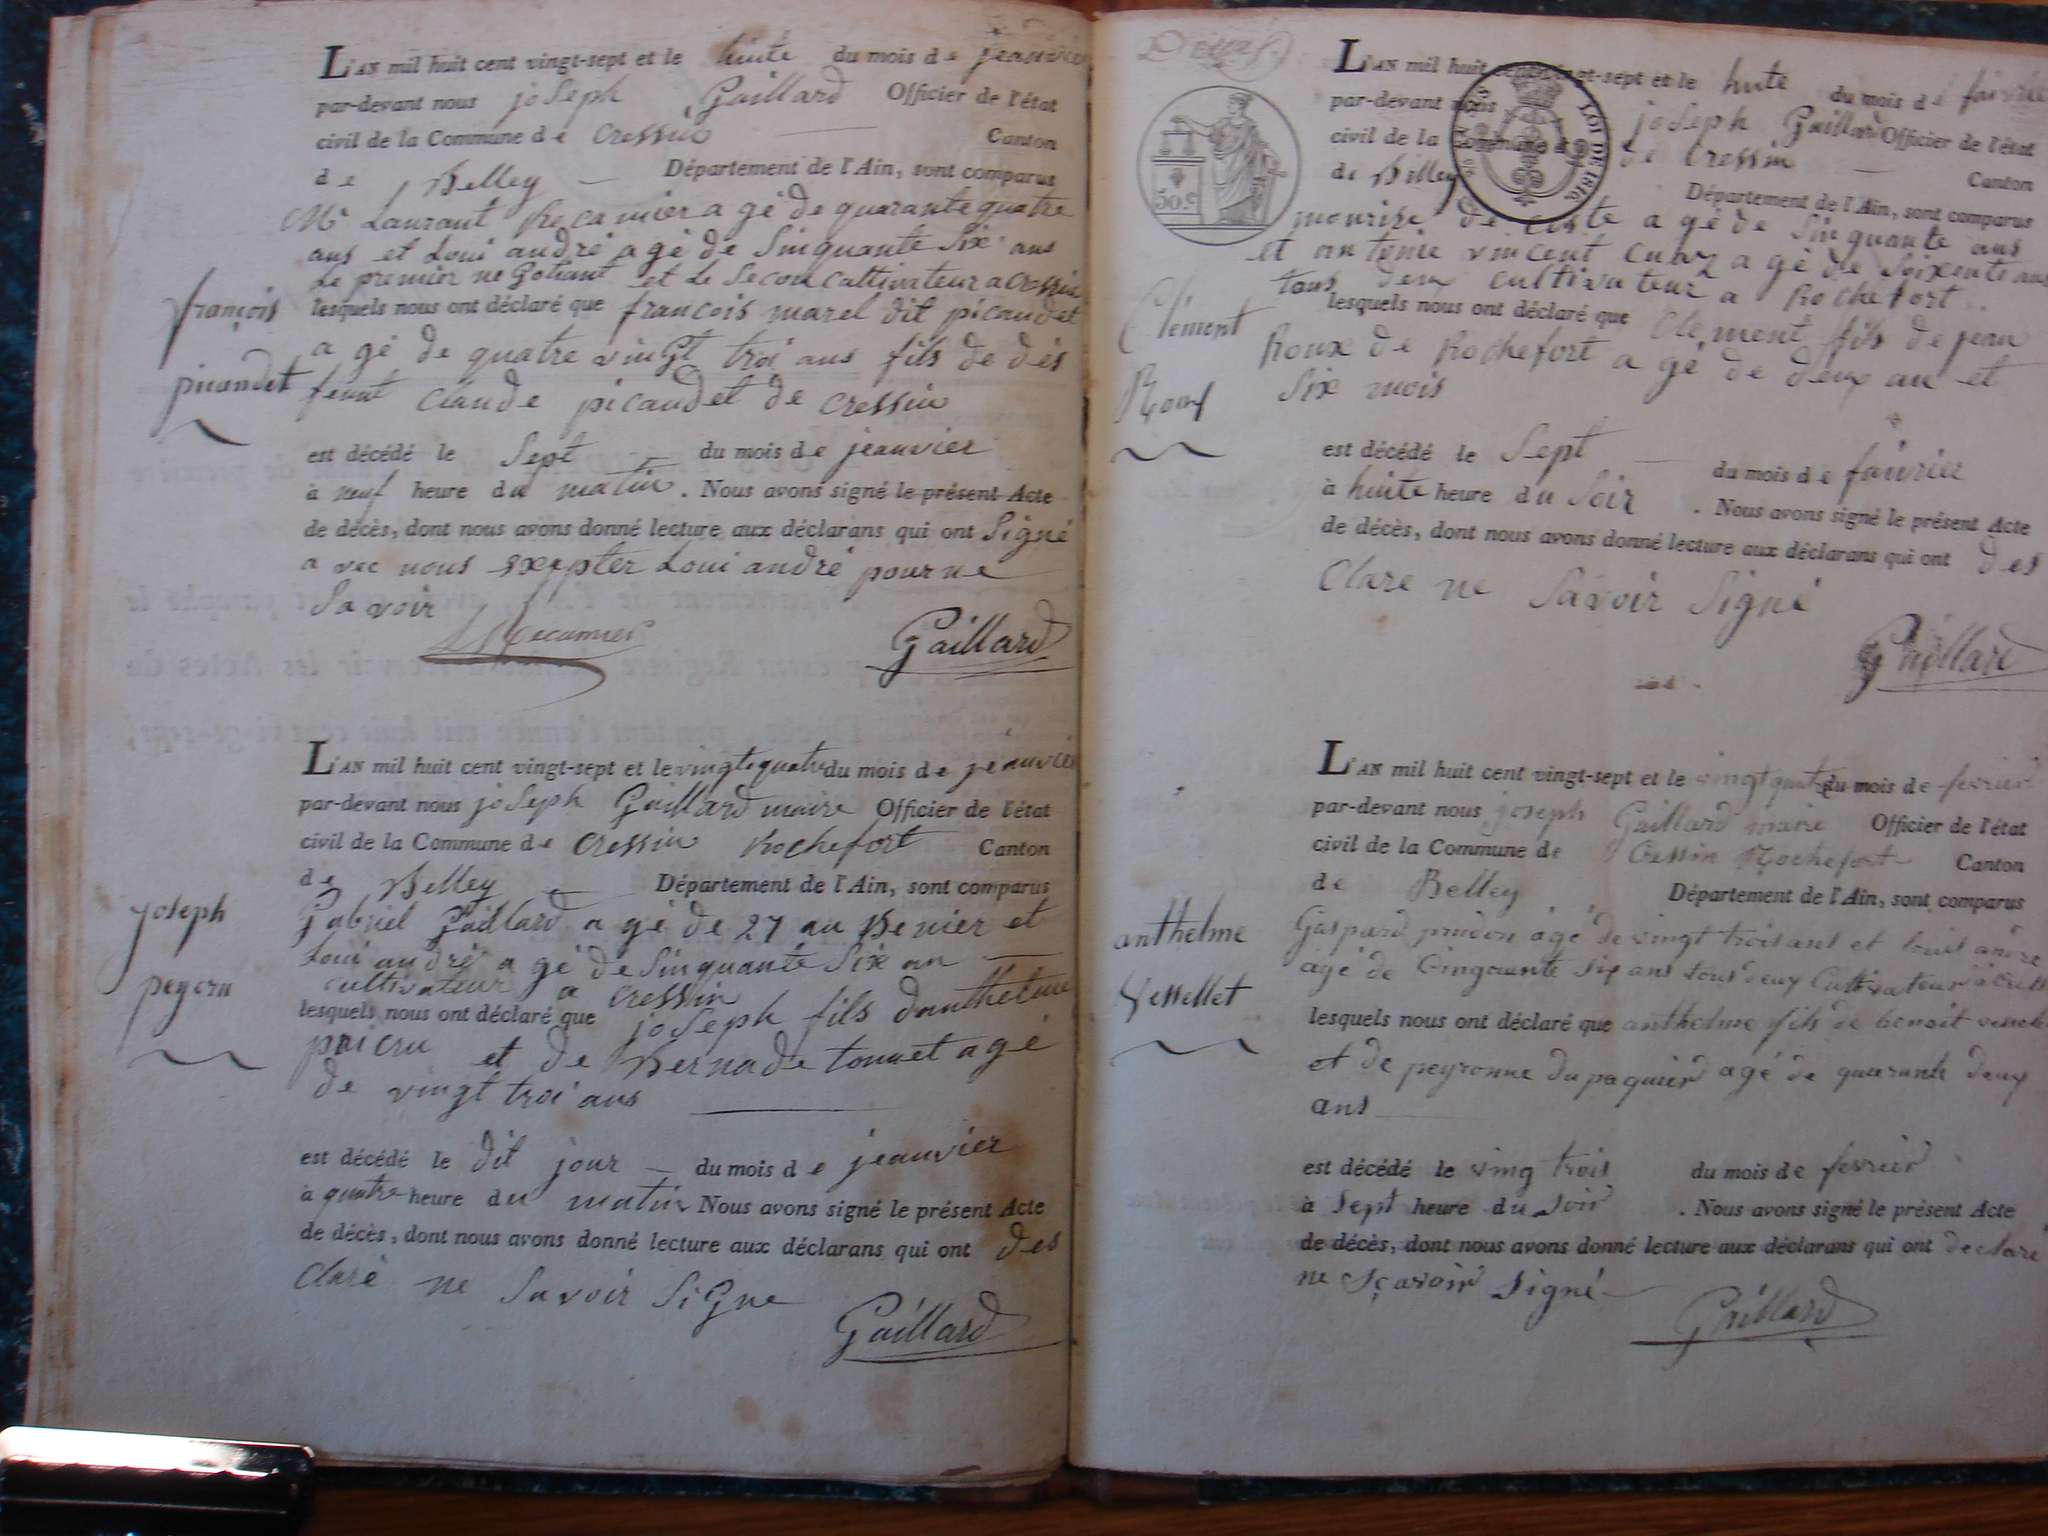 L'AN mil huit cent vingt-sept et le huite du mois de jeanvier
par-devant nous joseph Gaillard Officier de l'état
civil de la Commune de Cressin Canton
de Belley Département de l'Ain, sont comparus
Mr Laurant Recamier a gé de quarante quatre
ans et Loui andré a gé de Sinquante Six ans
Le premier negotiant et Le Second cultivateur a Cressin
françois
lesquels nous ont déclaré que francois marel dit picaudet
a gé de quatre vingt troi ans fils de dés
picaudet
funt Claude picaudet de Cressin
est décédé le Sept du mois de jeanvier
à neuf heure du matin. Nous avons signé le présent Acte
de décès, dont nous avons donné lecture aux déclarans qui ont Signé
a vec nous exepter Loui andré pour ne
Savoir
L Recamier Gaillard
L'AN mil huit cent vingt-sept et le vingt quatre du mois de jéanvier
par-devant nous joseph Gaillard maire Officier de l'état
civil de la Commune de Cressin Rochefort Canton
de Belley Département de l'Ain, sont comparus
joseph
Gabriel Gaillard a gé de 27 an et
Loui andré a gé de Sinquante Six an
peycru
cultivateur a Cressin
lesquels nous ont déclaré que joseph fils danthelme
peicru et de Bernade tonnet agé
de vingt troi ans
est décédé le dit jour du mois de jeanvier
à quatre heure du matin Nous avons signé le présent Acte
de décès, dont nous avons donné lecture aux déclarans qui ont des
Claré ne Savoir SiGne
Gaillard
50.c
LOI DE 1816
L'AN mil huit cent vingt-sept et le huite du mois de faivrier
par-devant nous joseph Gaillard Officier de l'état
civil de la Commune de Cressin Canton
de Belley Département de l'Ain, sont comparus
mourise de Coste a gé de Sinquante ans
et antenie vincent Cuaz a gé de Soixente ans
tous deux cultivateur a Rochefort
Clément
lesquels nous ont déclaré que Clement fils de jean
Roux de Rochefort a gé de deux an et
Roux
Six mois
est décédé le Sept du mois de faivrier
à huite heure du Soir. Nous avons signé le présent Acte
de décès, dont nous avons donné lecture aux déclarans qui ont des
Clare ne Savoir Signé
Gaillard
L'AN mil huit cent vingt-sept et le vingt quatre du mois de fevrier
par-devant nous joseph Gaillard maire Officier de l'état
civil de la Commune de Cressin Rochefort Canton
de Belley Département de l'Ain, sont comparus
anthelme
Gaspard agé de vingt trois ans et louis andre
agé de Cinquante Six ans tous deux Cultivateur à Cress
Vessellet
lesquels nous ont déclaré que anthelme fils de benoit
et de peyronne du paquier agé de quarante deux
ans
est décédé le ving trois du mois de fevrier
à Sept heure du Soir. Nous avons signé le présent Acte
de décès, dont nous avons donné lecture aux déclarans qui ont declaré
ne Sçavoir Signé
Gaillard